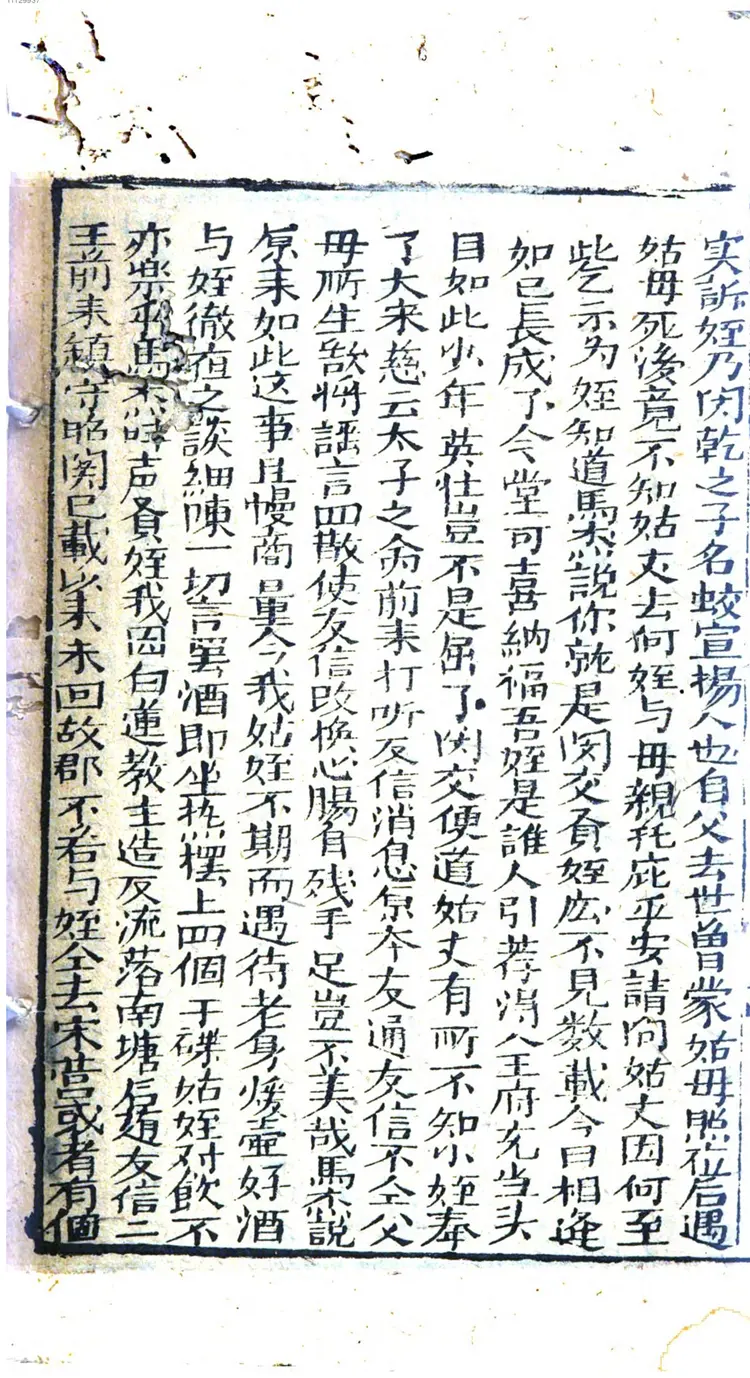 实訴姪乃関乾之子名蛟宣揚人也自父去世曽蒙姑毋照後遇
姑毋死後竟不知姑丈去何姪与毋親托庇平安請问姑丈因何至
此乞示为姪知道馬杰說你就是関交賢姪庅不見数載今日相逢
如已長成了令堂可喜納福吾姪是誰人引荐淂八王府充当头
目如此少年英壮豈不是屈了関交便道姑丈有所不知小姪奉
了大宋慈云太子之命前耒打听友信消息原夲友通友信不仝父
毋所生欲將謡言四散使友信改换心腸自残手足豈不美哉馬杰說
原耒如此这事且慢商量今我姑姪不期而遇待老身煖壺好酒
与姪徹夜之談細陳一切言罢酒即坐热摆上四個干碟姑姪对飲不
亦樂乎馬杰呌声賢姪我因白蓮教主造反流落南塘后随友信二
王前耒鎮守昭関已載以耒未回故郡不若与姪仝去宋营或者有個